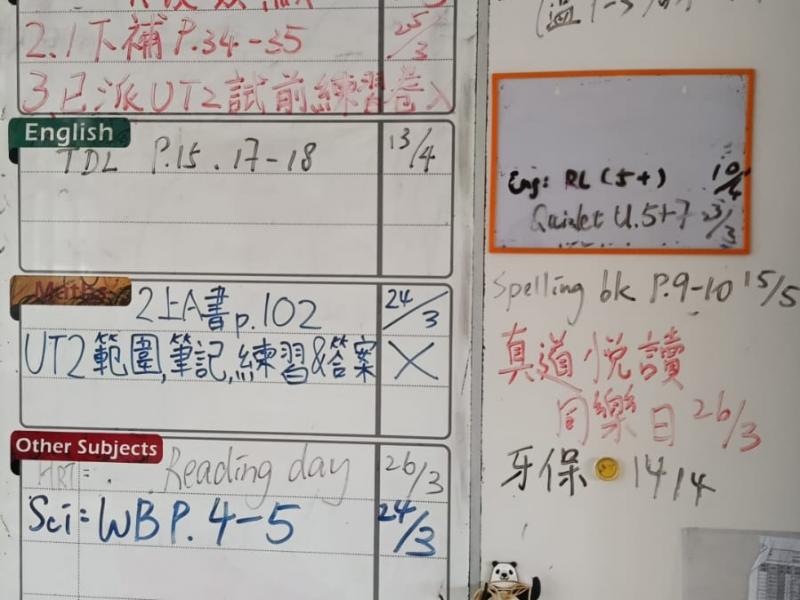 2.1下補P.34-35 25/3
3.已派UT2試前練習卷
English
TDL P.15. 17-18 13/4
Maths
2上A書p.102 24/3
UT2範圍,筆記,練習&答案 X
Other Subjects
HRT= Reading day 26/3
Sci= WB P. 4-5 24/3
Eng: RL (5+) 10/4
Quizlet U.5+7 23/3
Spelling bk P.9-10 15/5
真道悅讀
同樂日 26/3
牙保 14/4